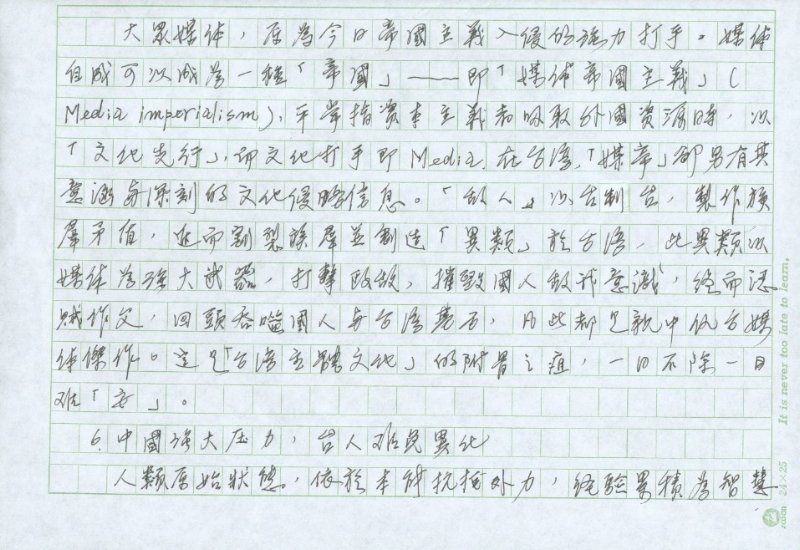 大眾媒体，原為今日帝國主義入侵的強力打手。媒体
自成可以成為一種「帝國」——即「媒体帝國主義」（
Media imperialism），平常指資本主義者吸取外國資源時，以
「文化先行」，而文化打手即 Media。在台湾，「媒帝」卻另有其
意涵与深刻的文化侵略信息。「敵人」以台制台，製作族
羣矛盾，進而割裂族羣並創造「異類」於台湾，此異類以
媒体為強大武器，打擊政敵，摧毀國人敵我意識，終而認
賊作父，回頭吞噬國人与台湾，凡此都是親中仇台媒
体傑作。這是「台湾主體文化」的附骨之疽，一日不除一日
难「安」。
6. 中國強大压力，台人难免異化
人類原始狀態，依於本能抗拒外力，經驗累積為智慧
It is never too late to learn.
24 × 25